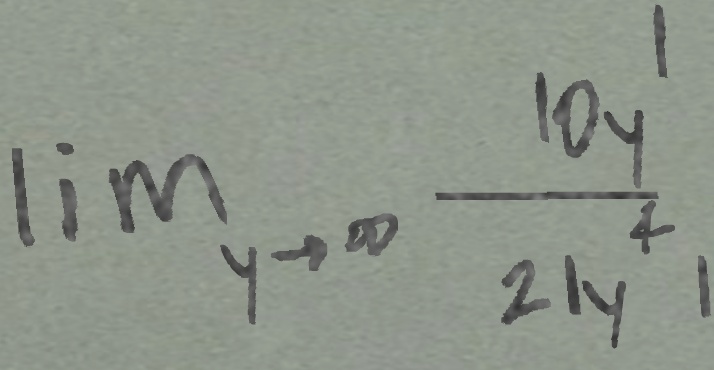 \lim_{y \to \infty} \frac{10y^1}{21y^1}